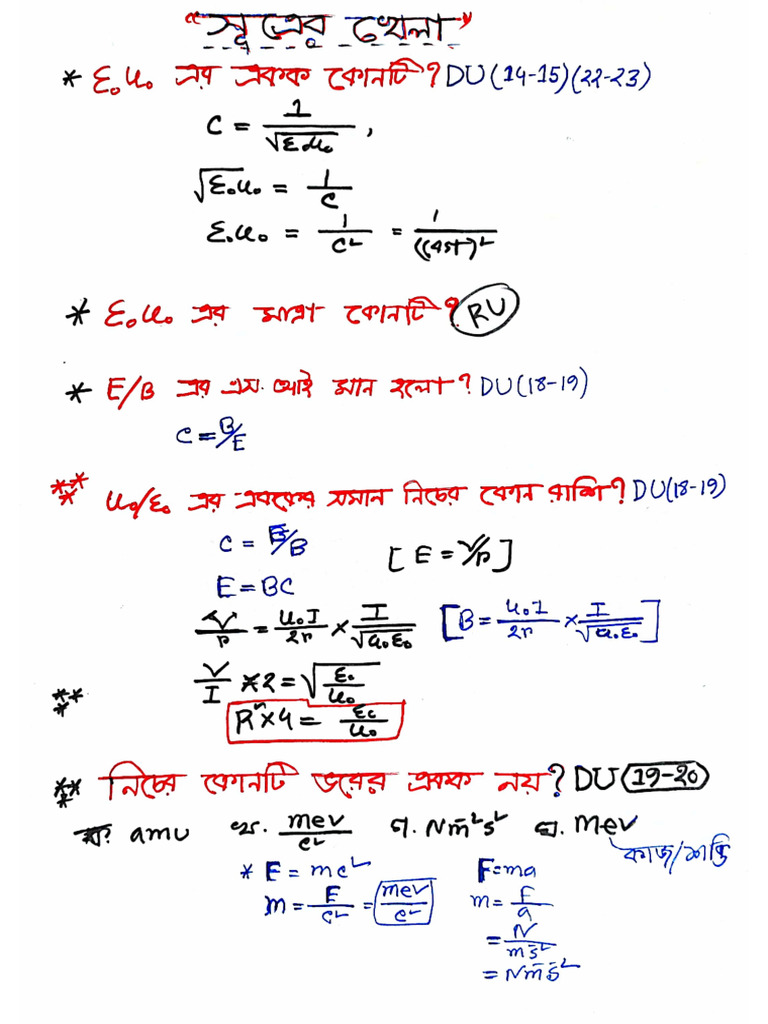 "সূত্রের খেলা"
* ε₀μ₀ এর একক কোনটি? DU(14-15)(22-23)
C = 1/√ε₀μ₀ ,
√ε₀μ₀ = 1/C
ε₀μ₀ = 1/C² = 1/(বেগ)²
* ε₀μ₀ এর মাত্রা কোনটি? RU
* E/B এর এস. আই মান হলো? DU(18-19)
C = B/E
** μ₀/ε₀ এর এককের সমান নিচের কোন রাশি? DU(18-19)
C = E/B [E = V/r]
E = BC
V/r = μ₀I/2r × I/√μ₀ε₀ [B = μ₀I/2r × I/√μ₀ε₀]
V/I × 2 = √ε₀/μ₀
** R² × 4 = ε₀/μ₀
** নিচের কোনটি ভরের একক নয়? DU (19-20)
ক. amu খ. mev/c² গ. Nm⁻¹s² ঘ. Mev
কাজ/শক্তি
* E = mc² F = ma
m = E/c² = mev/c² m = F/a
= N/ms⁻²
= Nm⁻¹s²